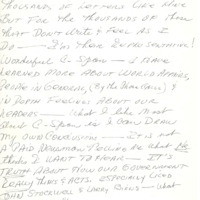 THOUSANDS OF LETTERS LIKE MINE
BUT FOR THE THOUSANDS OF THEM
THAT DON'T WRITE & FEEL AS I
DO — I'M THEIR REPRESENTATIVE!
WONDERFUL C-SPAN — I HAVE
LEARNED MORE ABOUT WORLD AFFAIRS,
PEOPLE IN GENERAL, (BY THE CALLS) &
IN DEPTH FEELINGS ABOUT OUR
LEADERS — WHAT I LIKE MOST
ABOUT C-SPAN IS I CAN DRAW
MY OWN CONCLUSIONS — IT IS NOT
A PAID NEWSMAN TELLING ME WHAT HE
THINKS I WANT TO HEAR — IT'S
TRUTH ABOUT HOW OUR GOVERNMENT
REALLY THINKS & ACTS. ESPECIALLY LIKED
JOHN STOCKWELL & LARRY — WHAT